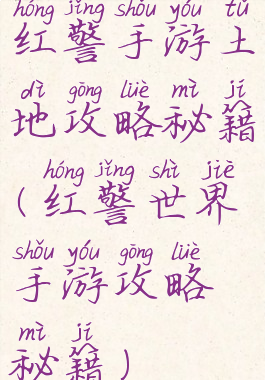 hóng jǐng shǒu yóu tǔ
红警手游土
dì gōng lüè mì jí
地攻略秘籍
hóng jǐng shì jiè
(红警世界
shǒu yóu gōng lüè
手游攻略
mì jí
秘籍)